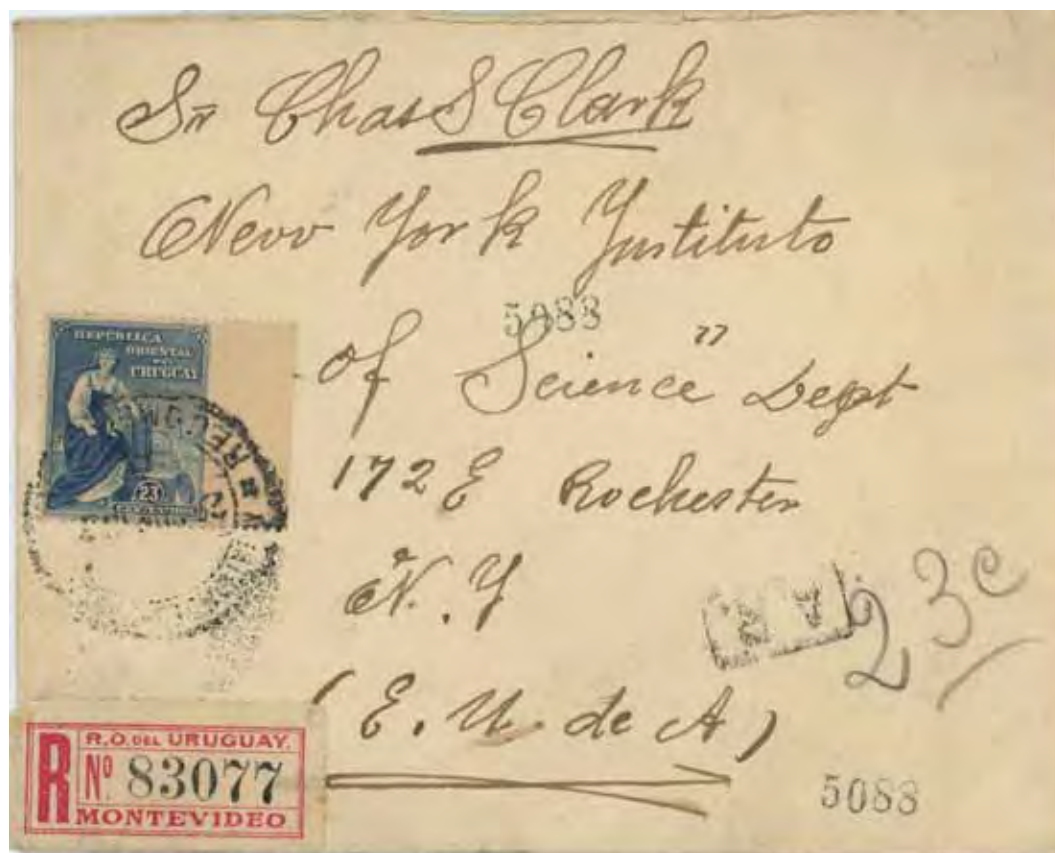 Sr Chas S Clark
New York Instituto
5088
of Science" Dept
172 E Rochester
N. Y
(E. U. de A)
REPÚBLICA
ORIENTAL
DEL
URUGUAY
23
CENTESIMOS
RECOM
A R
23c
R
R.O. DEL URUGUAY.
Nº 83077
MONTEVIDEO
5088